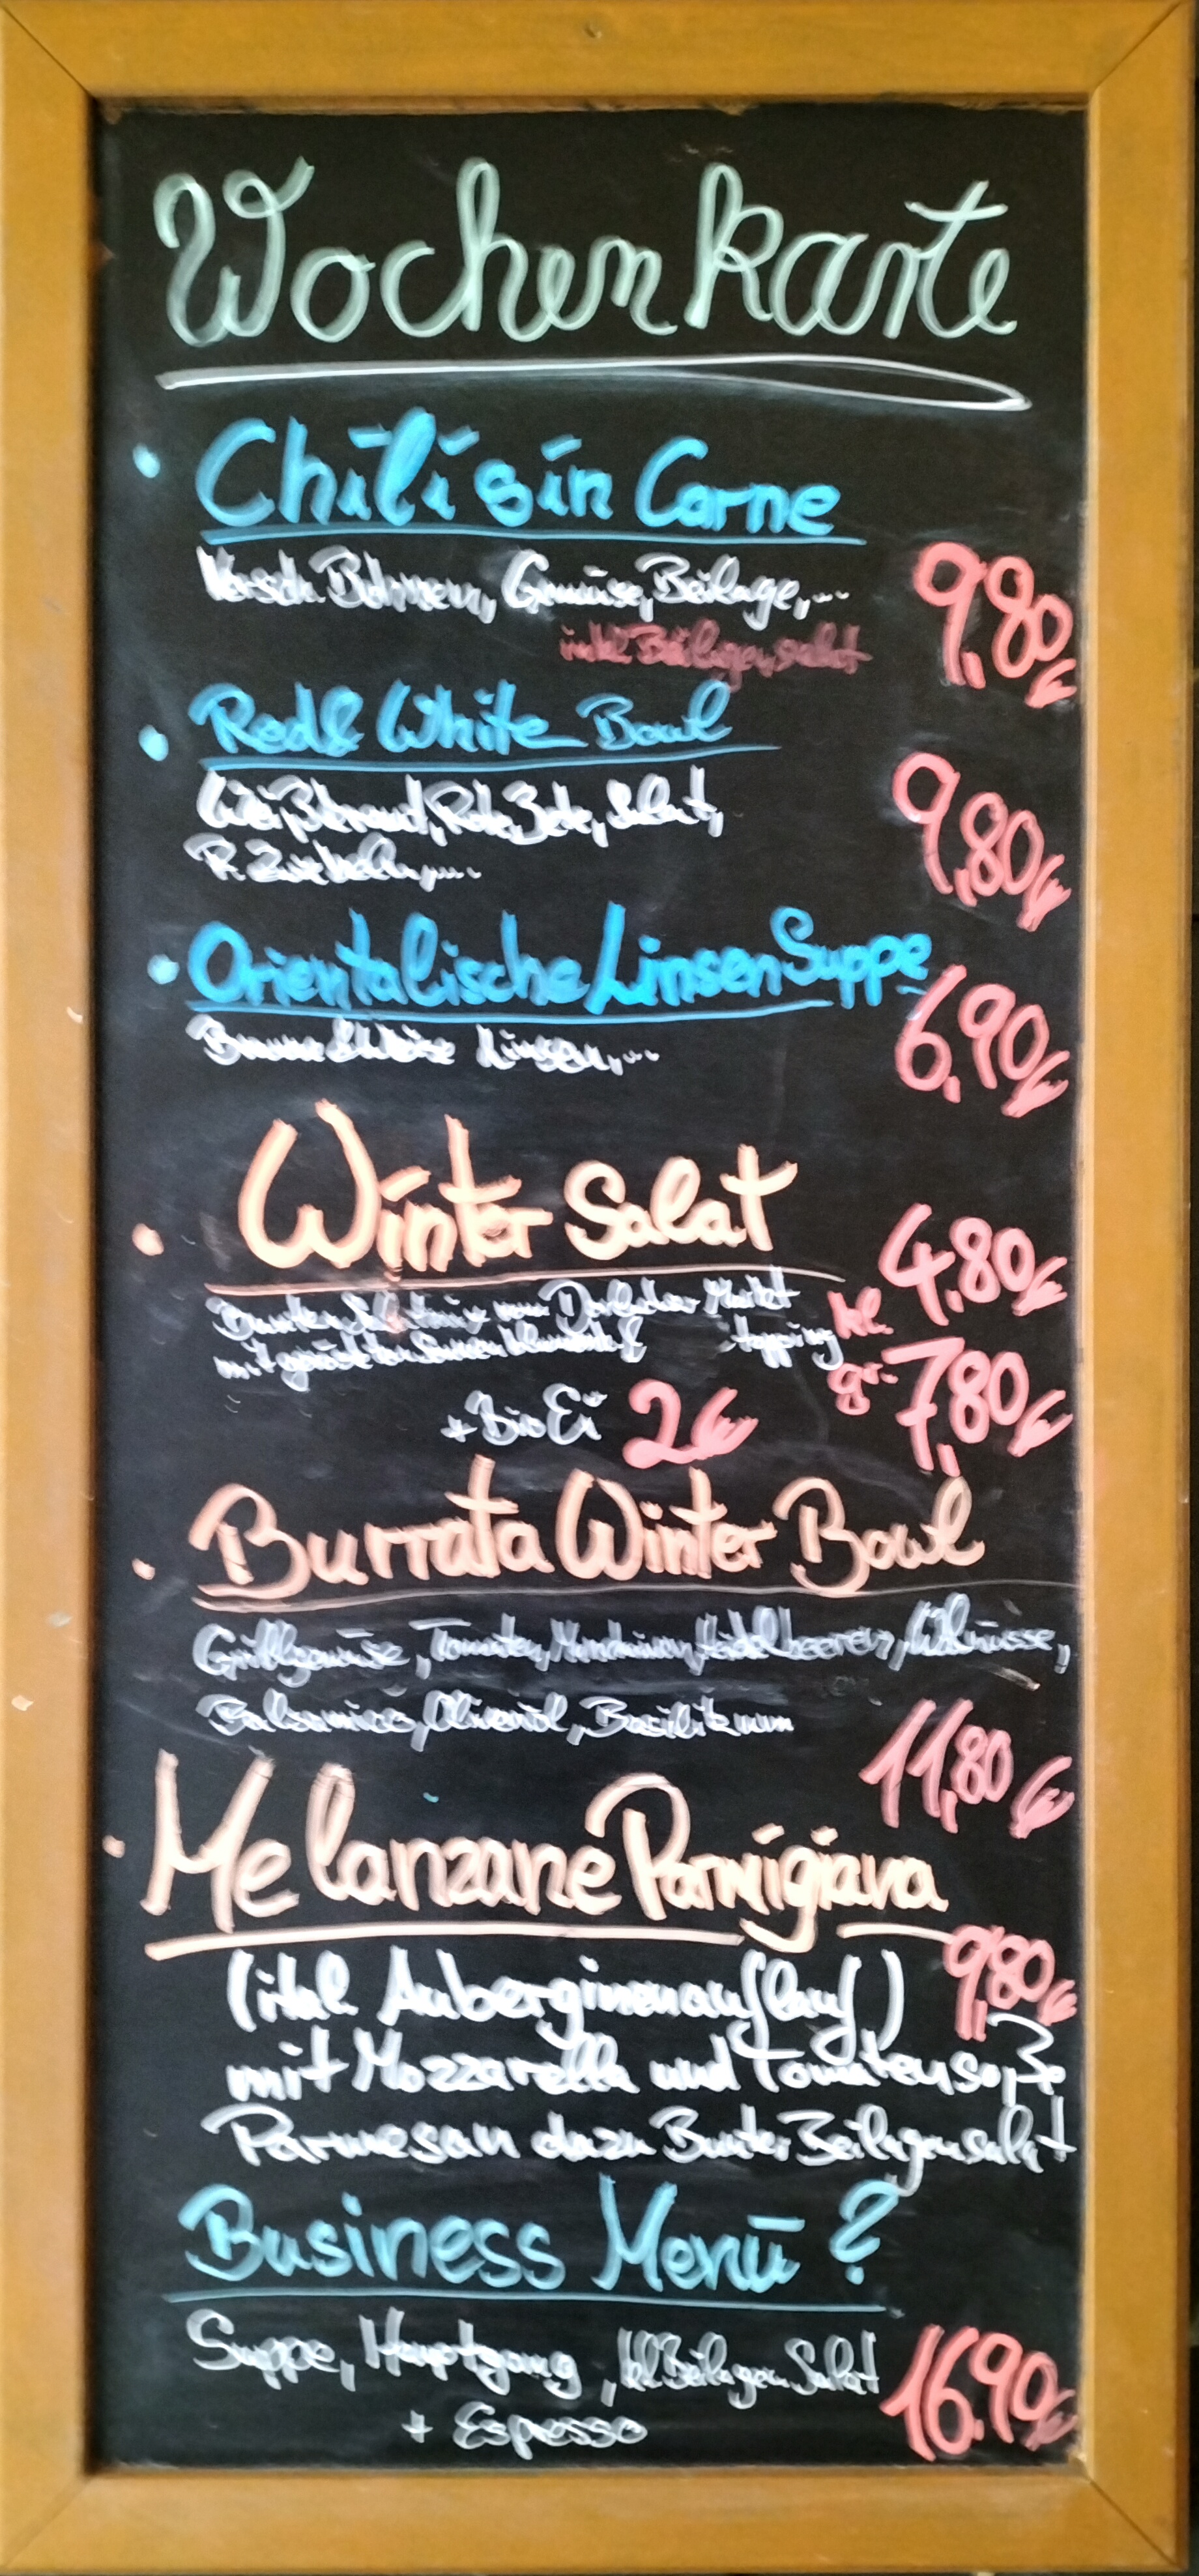 Wochenkarte
Chili sin Carne
Versch. Bohnen, Gemüse, Beilage,...
9,80€
inkl Beilagensalat
Red & White Bowl
Weißkraut, Rote Bete, Salat,
R. Zwiebeln,...
9,80€
Orientalische Linsen Suppe
Braune & Weise Linsen,...
6,90€
Winter Salat
4,80€
Bunter Salatmix vom Durlacher Markt kl.
mit gerösteten Sonnenblumen topping
gr. 7,80€
+ Bio Ei 2€
Burrata Winter Bowl
Grillgemüse, Tomaten, Heidelbeeren, Walnüsse,
Balsamico, Olivenöl, Basilikum
11,80€
Melanzane Parmigiana
9,80€
(ital. Auberginenauflauf)
mit Mozzarella und Tomatensoße
Parmesan dazu Bunter Beilagensalat
Business Menü ?
Suppe, Hauptgang, kl Beilagen Salat
16.90€
+ Espresso